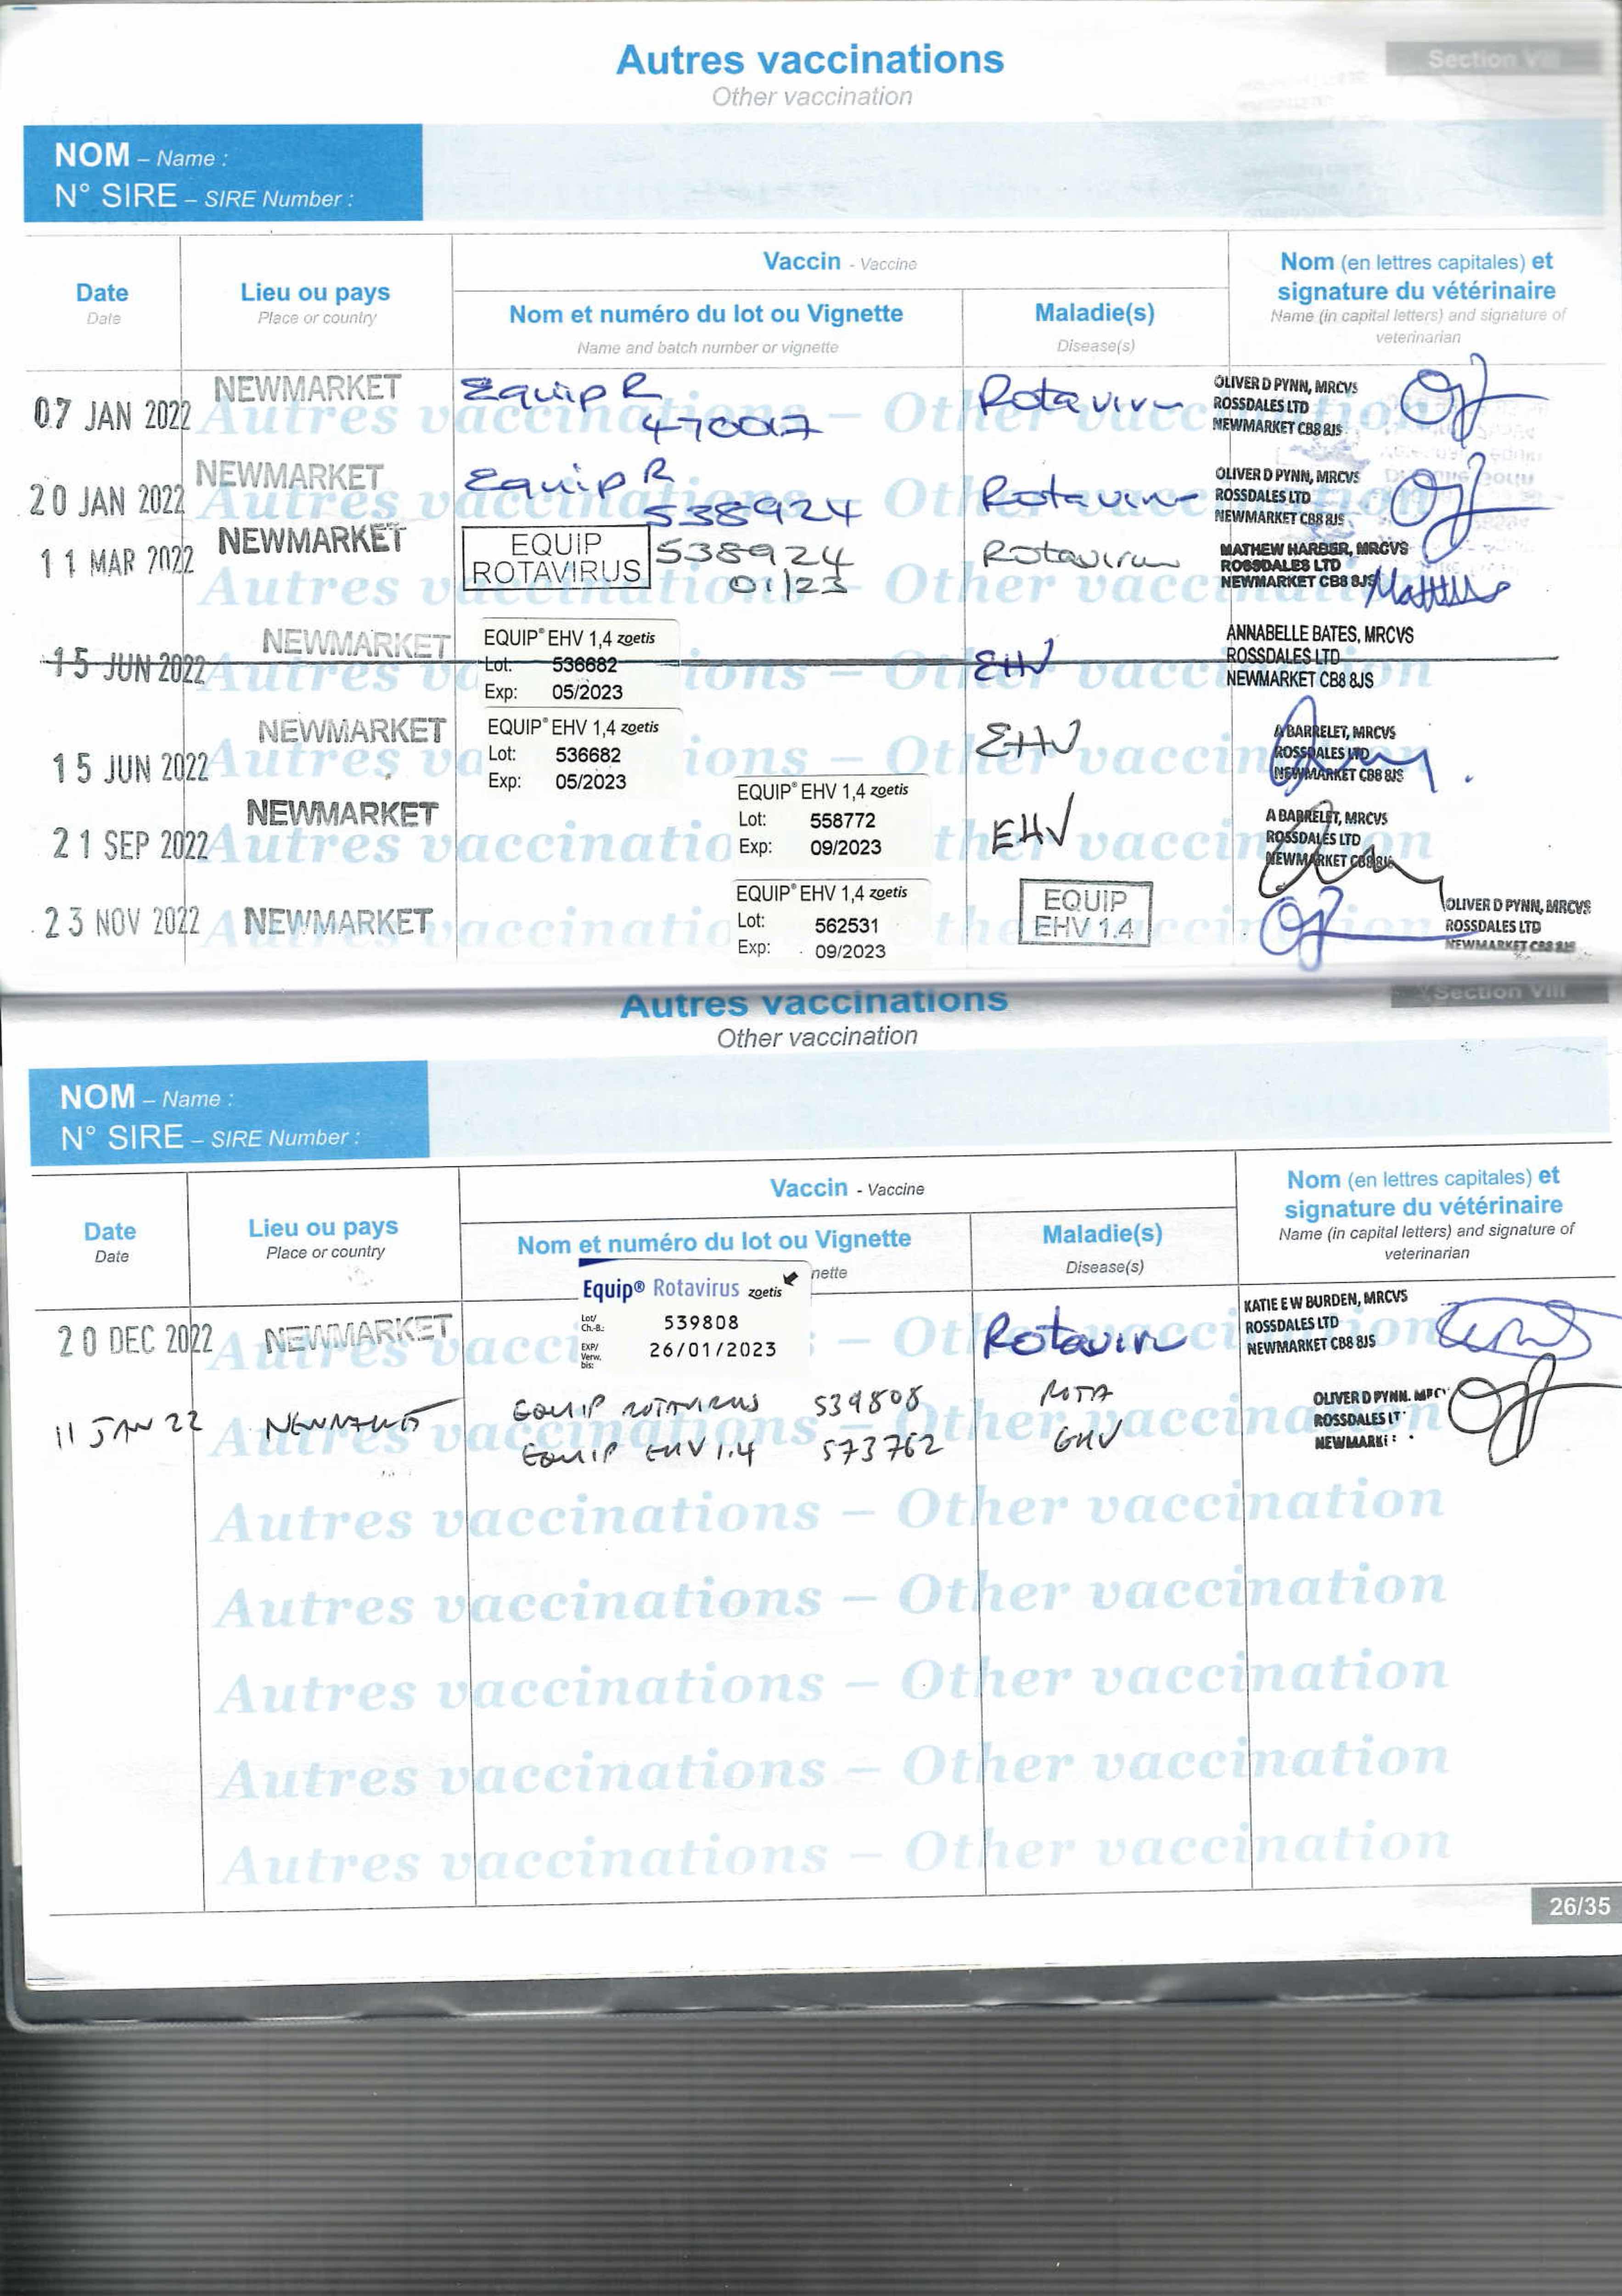 Autres vaccinations
Section VIII
Other vaccination
NOM – Name :
N° SIRE – SIRE Number :
Date
Date
Lieu ou pays
Place or country
Vaccin - Vaccine
Nom et numéro du lot ou Vignette
Name and batch number or vignette
Maladie(s)
Disease(s)
Nom (en lettres capitales) et
signature du vétérinaire
Name (in capital letters) and signature of
veterinarian
07 JAN 2022 NEWMARKET Equip R Rotavirus OLIVER D PYNN, MRCVS
470017 ROSSDALES LTD
NEWMARKET CB8 8JS
20 JAN 2022 NEWMARKET Equip R Rotavirus OLIVER D PYNN, MRCVS
538924 ROSSDALES LTD
NEWMARKET CB8 8JS
11 MAR 2022 NEWMARKET EQUIP ROTAVIRUS 538924 Rotavirus MATHEW HARBER, MRCVS
01/23 ROSSDALES LTD
NEWMARKET CB8 8JS
15 JUN 2022 NEWMARKET EQUIP® EHV 1,4 zoetis EHV ANNABELLE BATES, MRCVS
Lot: 536682 ROSSDALES LTD
Exp: 05/2023 NEWMARKET CB8 8JS
15 JUN 2022 NEWMARKET EQUIP® EHV 1,4 zoetis EHV A BARRELET, MRCVS
Lot: 536682 ROSSDALES LTD
Exp: 05/2023 NEWMARKET CB8 8JS
21 SEP 2022 NEWMARKET EQUIP® EHV 1,4 zoetis EHV A BARRELET, MRCVS
Lot: 558772 ROSSDALES LTD
Exp: 09/2023 NEWMARKET CB8 8JS
23 NOV 2022 NEWMARKET EQUIP® EHV 1,4 zoetis EQUIP EHV 1.4 OLIVER D PYNN, MRCVS
Lot: 562531 ROSSDALES LTD
Exp: 09/2023 NEWMARKET CB8 8JS
Autres vaccinations
Section VIII
Other vaccination
NOM – Name :
N° SIRE – SIRE Number :
Date
Date
Lieu ou pays
Place or country
Vaccin - Vaccine
Nom et numéro du lot ou Vignette
nette
Maladie(s)
Disease(s)
Nom (en lettres capitales) et
signature du vétérinaire
Name (in capital letters) and signature of
veterinarian
20 DEC 2022 NEWMARKET Equip® Rotavirus zoetis Rotavirus KATIE E W BURDEN, MRCVS
Lot/ Ch.-B.: 539808 ROSSDALES LTD
EXP/ Verw. bis: 26/01/2023 NEWMARKET CB8 8JS
11 JAN 22 NEWMARKET EQUIP ROTAVIRUS 539808 ROTA OLIVER D PYNN. MRCV
EQUIP EHV 1.4 573762 EHV ROSSDALES LT
NEWMARK
Autres vaccinations – Other vaccination
Autres vaccinations – Other vaccination
Autres vaccinations – Other vaccination
Autres vaccinations – Other vaccination
Autres vaccinations – Other vaccination
26/35